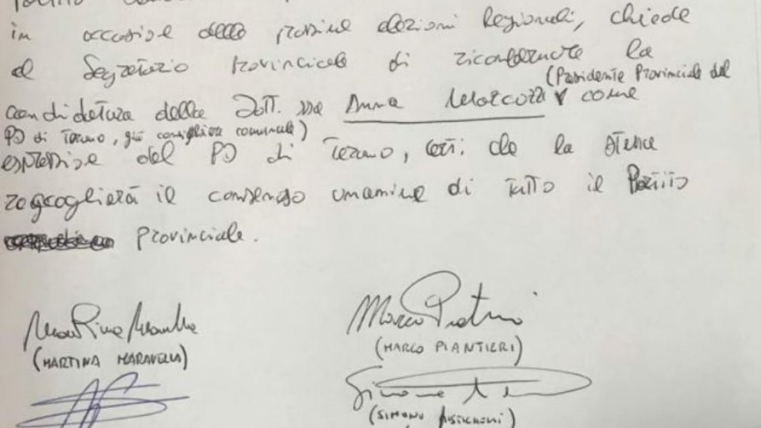 in occasione delle prossime elezioni Regionali, chiede
al Segretario Provinciale di riconfermare la
(Presidente Provinciale del
candidatura della Dott.ssa Anna Marcozzi come
PD di Teramo, già consigliera comunale)
espressione del PD di Teramo, certi che la stessa
raccoglierà il consenso unanime di tutto il Partito
Provinciale.
(MARTINA MARAVELLA)
(MARCO PIANTIERI)
(SIMONE